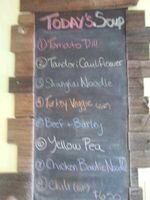 TODAY'S Soup
① Tomato Dill
② Tandori Cauliflower
③ Shanghai Noodle
④ Turkey Veggie
⑤ Beef + Barley
⑥ Yellow Pea
⑦ Chicken Noodle
⑧ Chili